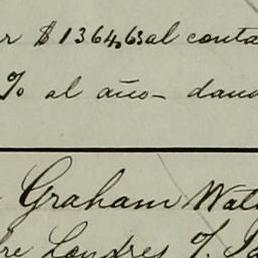 $1364,63 al conta
% al año - dand
Graham Wat
Londres